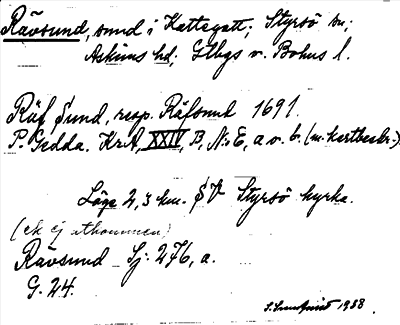 Rävsund, sund i Kattegatt; Styrsö sn;
Askims hd; Gtbgs o. Bohus l.
Räf Sund, resp. Räfsund 1691.
P. Gedda. KrA, XXIV, B, N:o E, a o. b. (m. kartbeskr.)
Läge 2,3 km. SV Styrsö kyrka.
(ek ej
Rävsund Sj: 276, a.
G. 24.
1938.